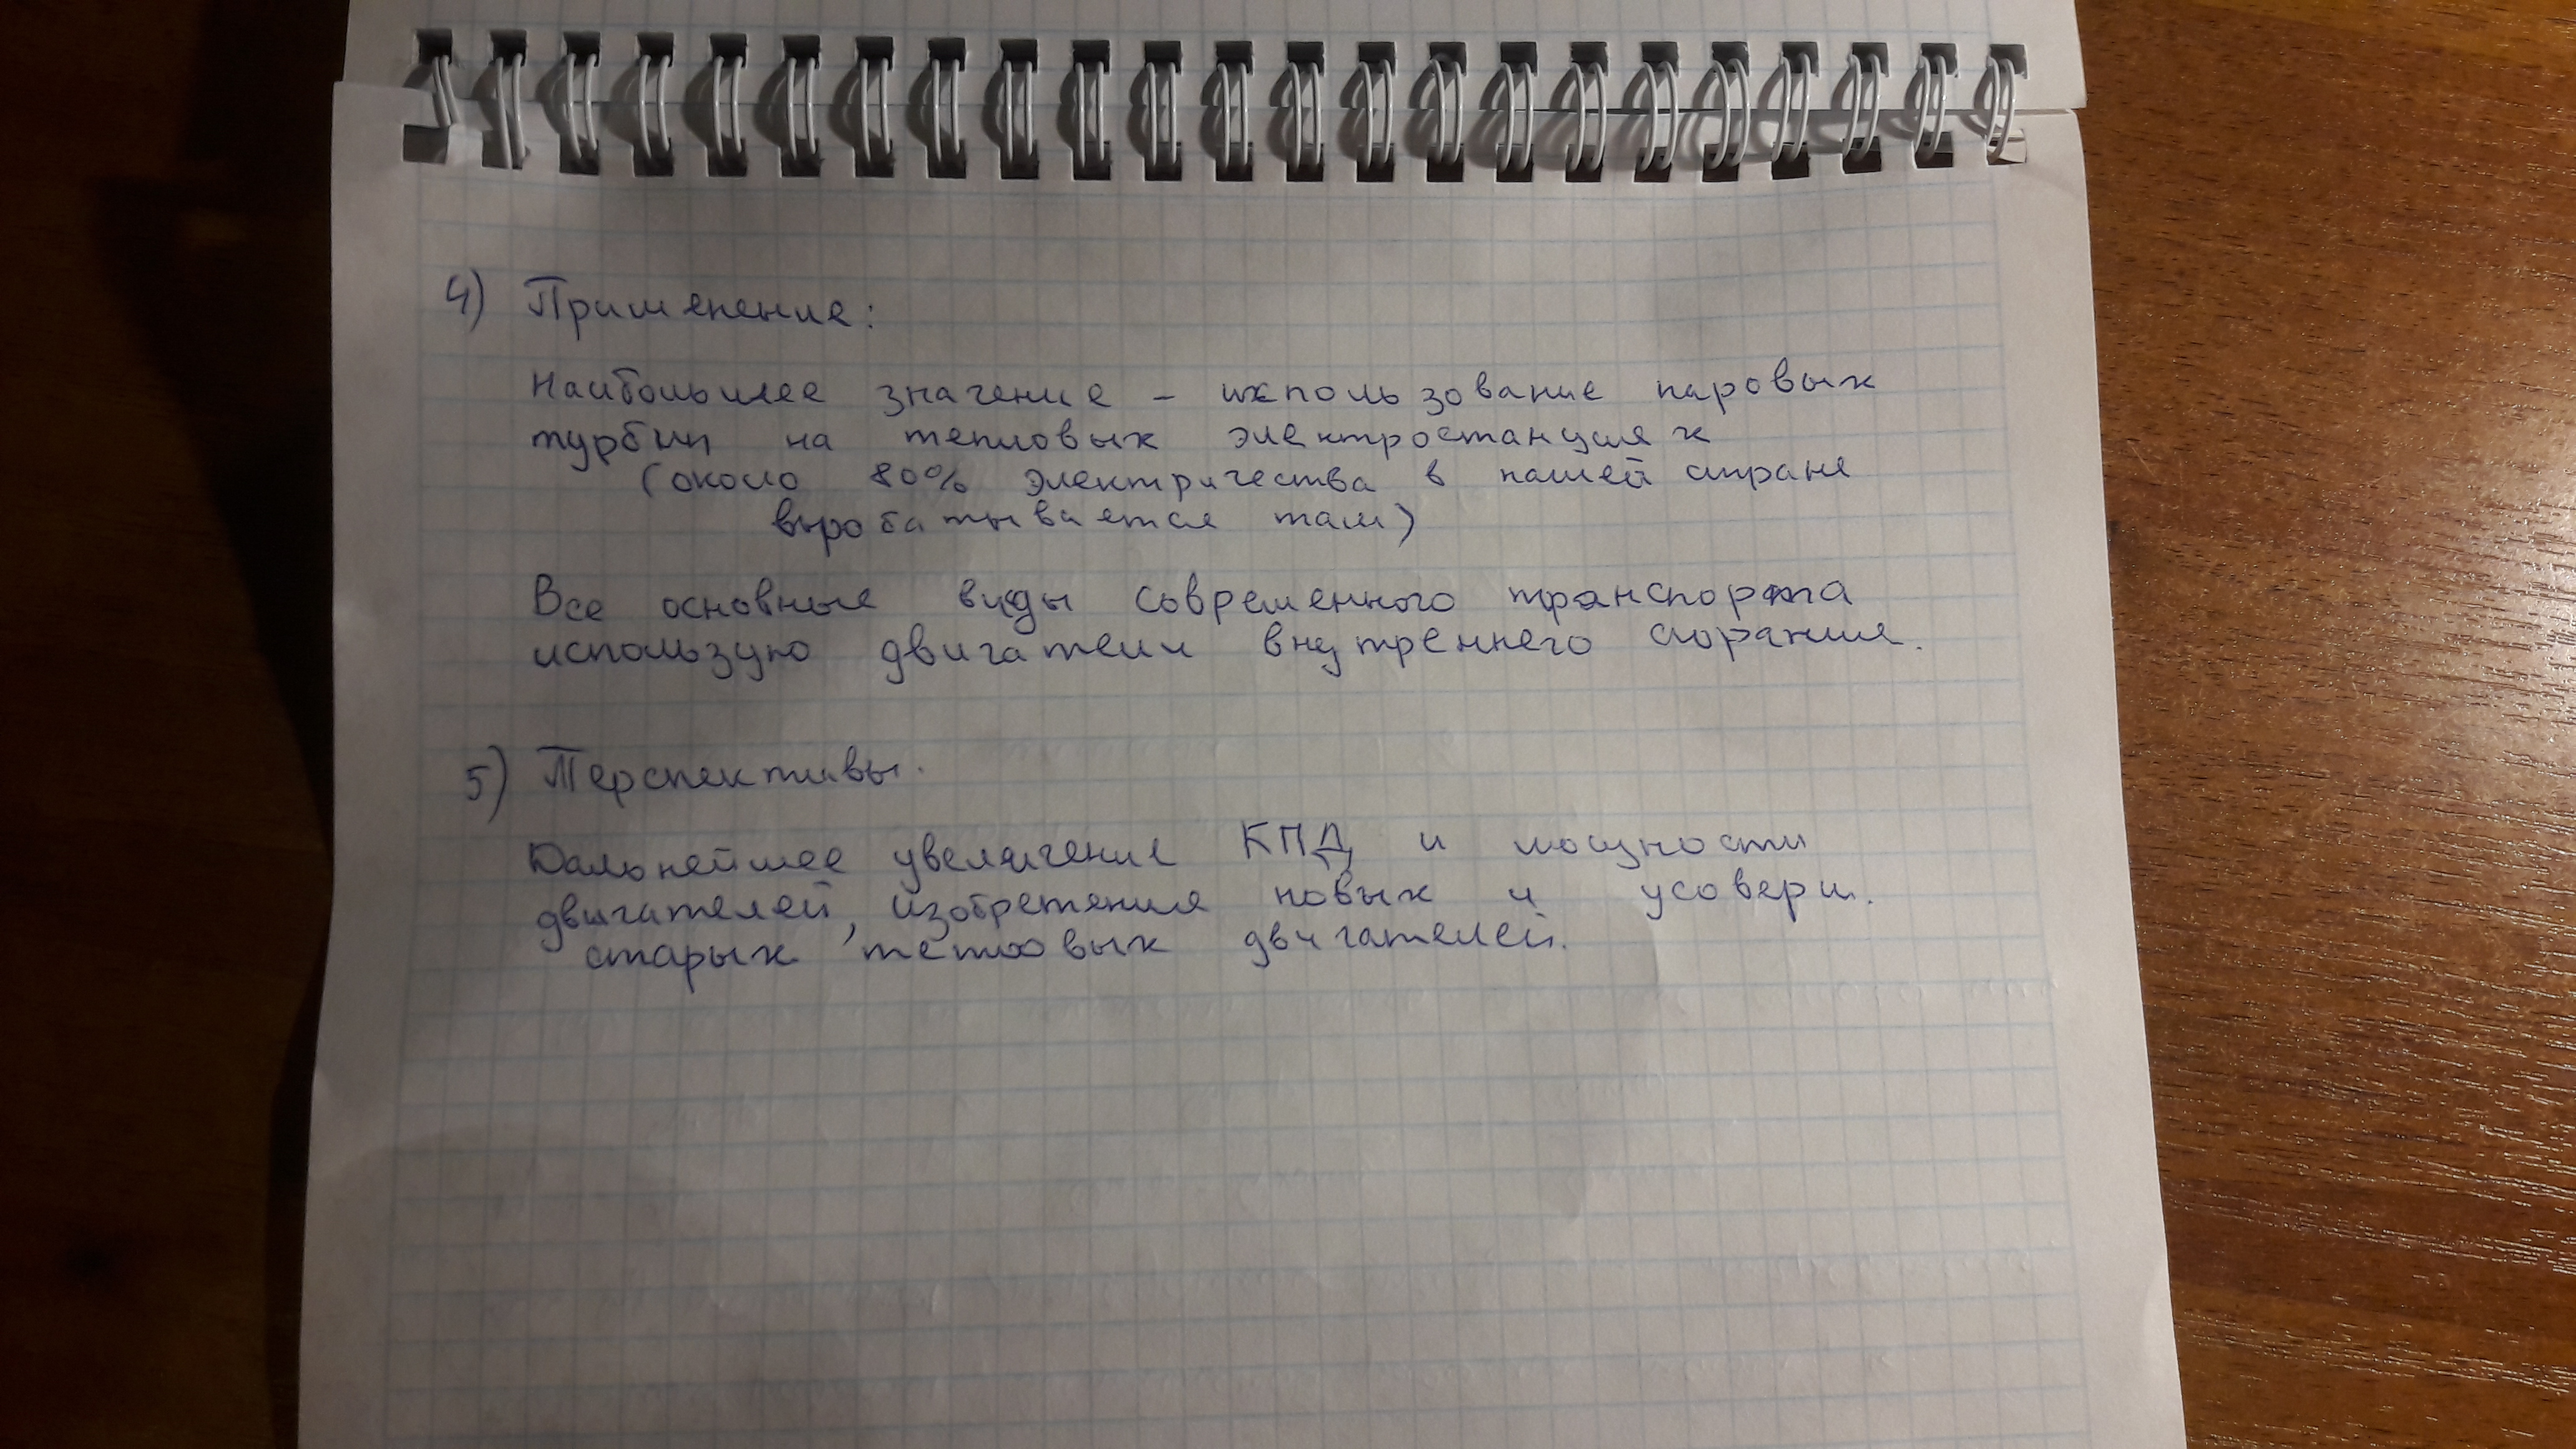 4) Применение:
Наибольшее значение - использование паровых
турбин на тепловых электростанциях
(около 80% электричества в нашей стране
выробатывается там)
Все основные виды современного транспорта
использую двигатели внутреннего сгорания.
5) Перспективы.
Дальнейшее увеличение КПД и мощности
двигателей, изобретения новых и усоверш.
старых тепловых двигателей.